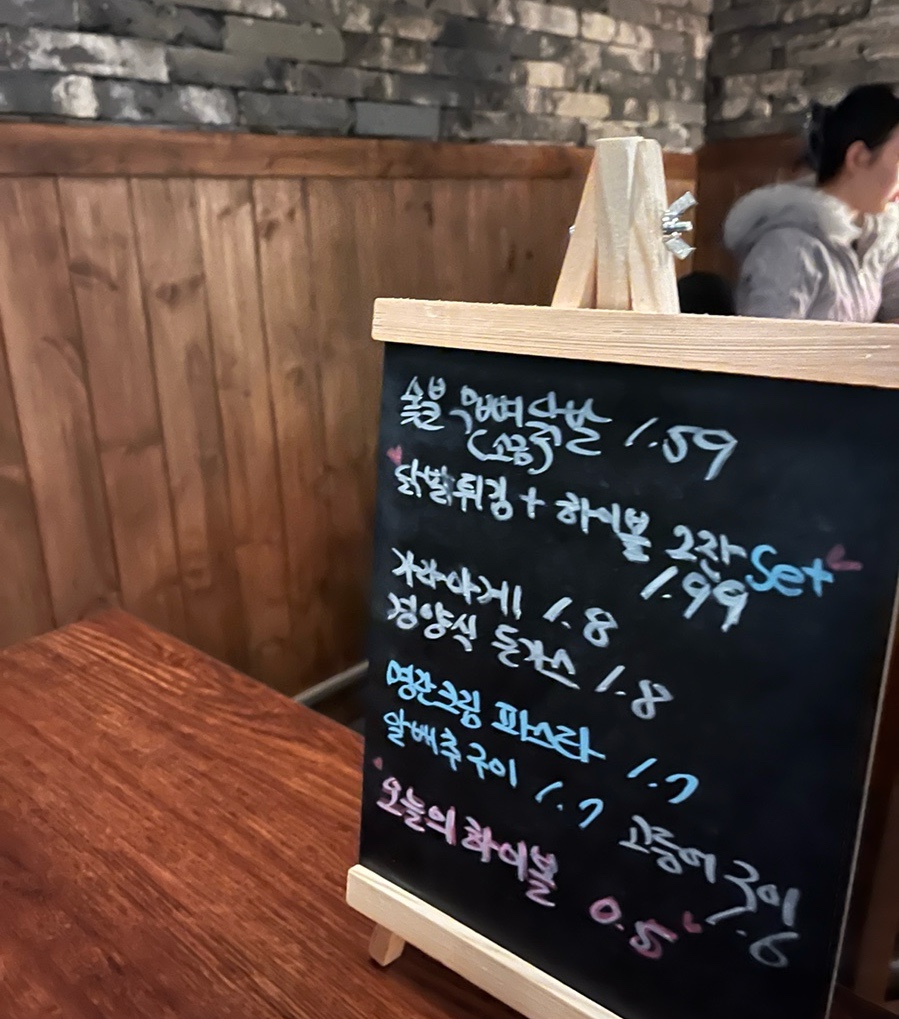 숯불 무뼈닭발 1.59
(소금)
닭발튀김 + 하이볼 2잔 Set
1.99
가라아게 1.8
경양식 돈가스 1.8
명란크림 파스타 1.7
알배추구이 1.7
고등어구이
1.6
오늘의 하이볼 0.5